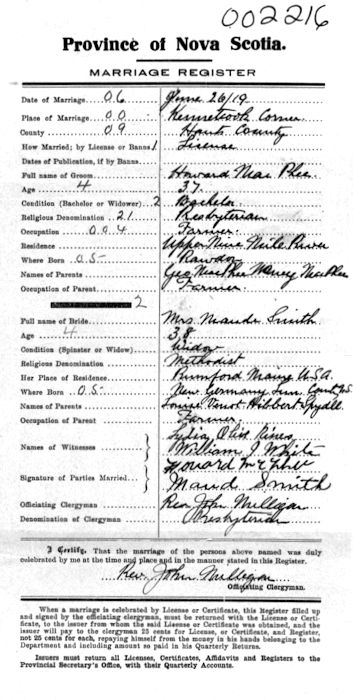 002216
Province of Nova Scotia.
MARRIAGE REGISTER
Date of Marriage 06 June 26/19
Place of Marriage 00 Kennetcook Corner
County 09 Hants County
How Married; by License or Banns 1 License
Dates of Publication, if by Banns
Full name of Groom Howard Mac Phee
Age 4 37
Condition (Bachelor or Widower) 2 Bachelor
Religious Denomination 21 Presbyterian
Occupation 004 Farmer
Residence Upper Nine Mile River
Where Born 05- Rawdon
Names of Parents Geo MacPhee MacPhee
Occupation of Parent Farmer
2
Full name of Bride Mrs. Maude Smith
Age 4 38
Condition (Spinster or Widow) Widow
Religious Denomination Methodist
Her Place of Residence Rumford Maine U.S.A.
Where Born 05- New Germany Lun. Count NS
Names of Parents Hibbert
Occupation of Parent Farmer
Names of Witnesses Lydia
William J White
Signature of Parties Married Howard
Maud Smith
Officiating Clergyman Rev John Milligan
Denomination of Clergyman Presbyterian
I Certify, That the marriage of the persons above named was duly
celebrated by me at the time and place and in the manner stated in this Register.
Rev. John Milligan
Officiating Clergyman.
When a marriage is celebrated by License or Certificate, this Register filled up
and signed by the officiating clergyman, must be returned with the License or Certi-
ficate, to the issuer from whom the said License or Certificate was obtained, and the
issuer will pay to the clergyman 25 cents for License, or Certificate, and Register,
not 25 cents for each, repaying himself from the money in his hands belonging to the
Department and including amount so paid in his Quarterly Returns.
Issuers must return all Licenses, Certificates, Affidavits and Registers to the
Provincial Secretary's Office, with their Quarterly Accounts.